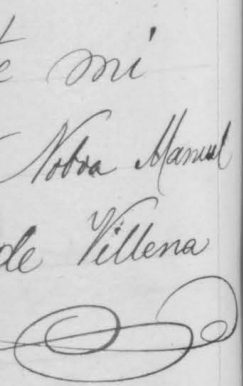 te mi
Noboa Manuel
de Villena